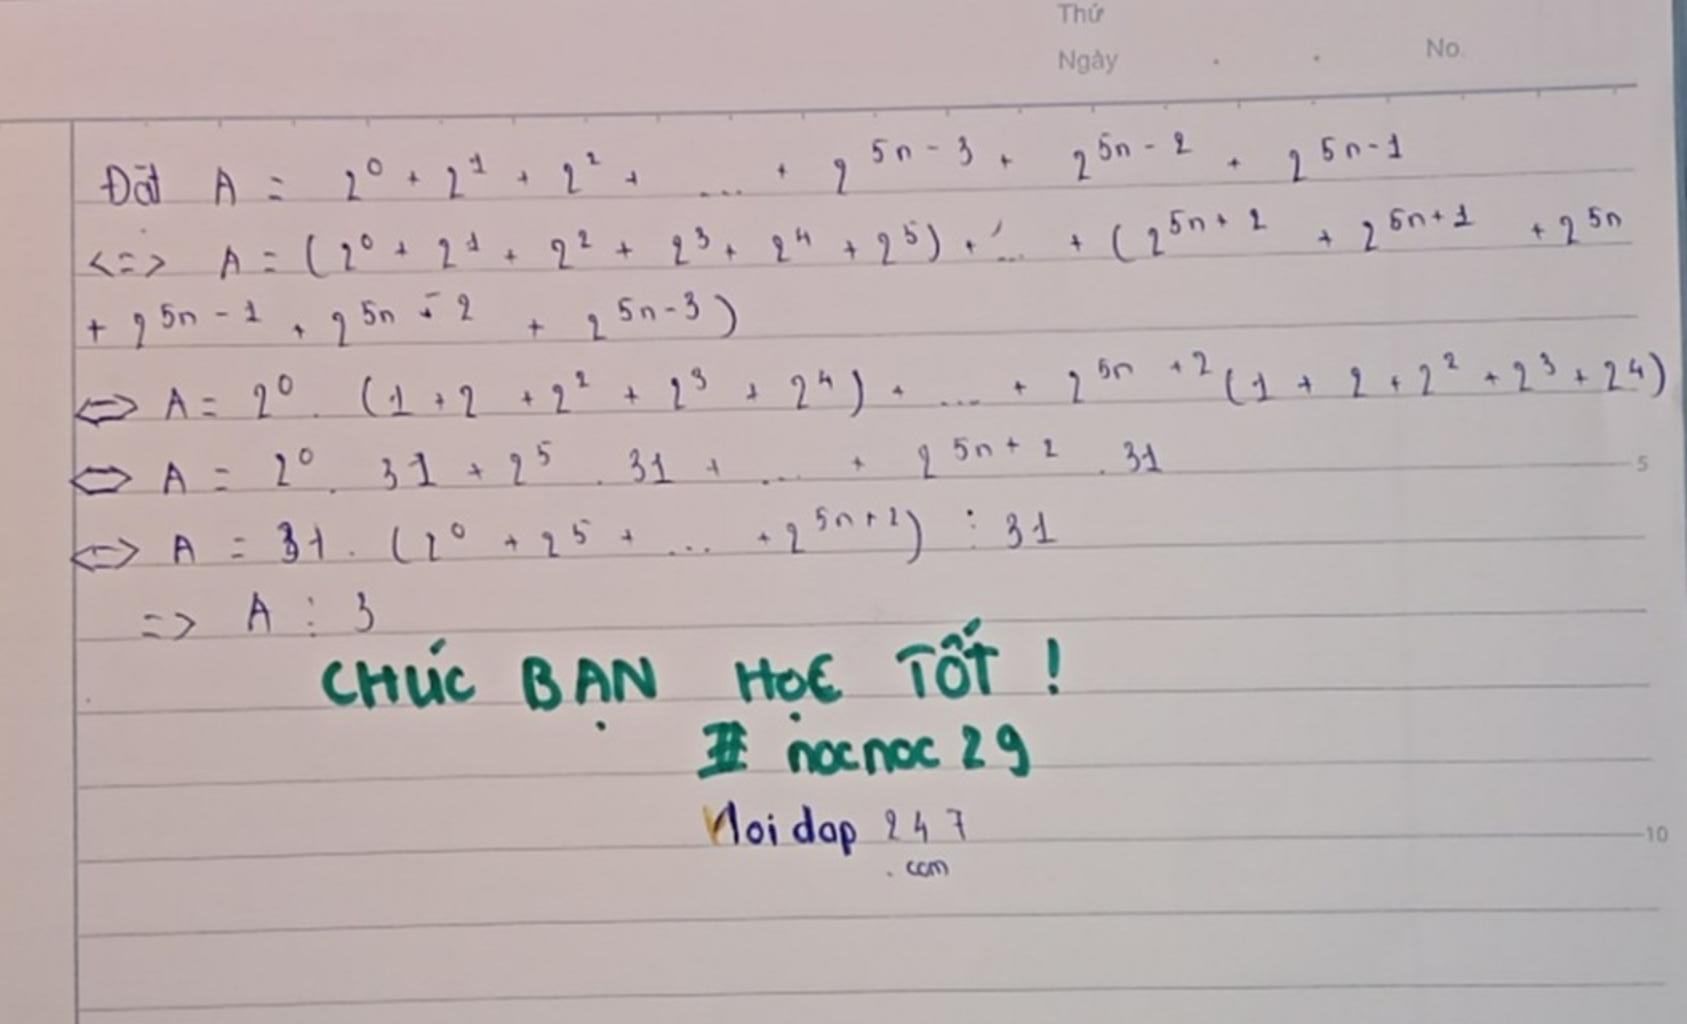 Thứ
Ngày . . No.
Đặt A = 2⁰ + 2¹ + 2² + .... + 2⁵ⁿ⁻³ + 2⁵ⁿ⁻² + 2⁵ⁿ⁻¹
<=> A = (2⁰ + 2¹ + 2² + 2³ + 2⁴ + 2⁵) + ... + (2⁵ⁿ⁺² + 2⁵ⁿ⁺¹ + 2⁵ⁿ
+ 2⁵ⁿ⁻¹ + 2⁵ⁿ⁻² + 2⁵ⁿ⁻³)
<=> A = 2⁰ . (1 + 2 + 2² + 2³ + 2⁴) + .... + 2⁵ⁿ⁺² (1 + 2 + 2² + 2³ + 2⁴)
<=> A = 2⁰ . 31 + 2⁵ . 31 + .... + 2⁵ⁿ⁺² . 31
5
<=> A = 31 . (2⁰ + 2⁵ + ... + 2⁵ⁿ⁺²) ⋮ 31
=> A ⋮ 3
CHÚC BẠN HỌC TỐT !
# nocnoc 29
Hoidap 247
.com
10